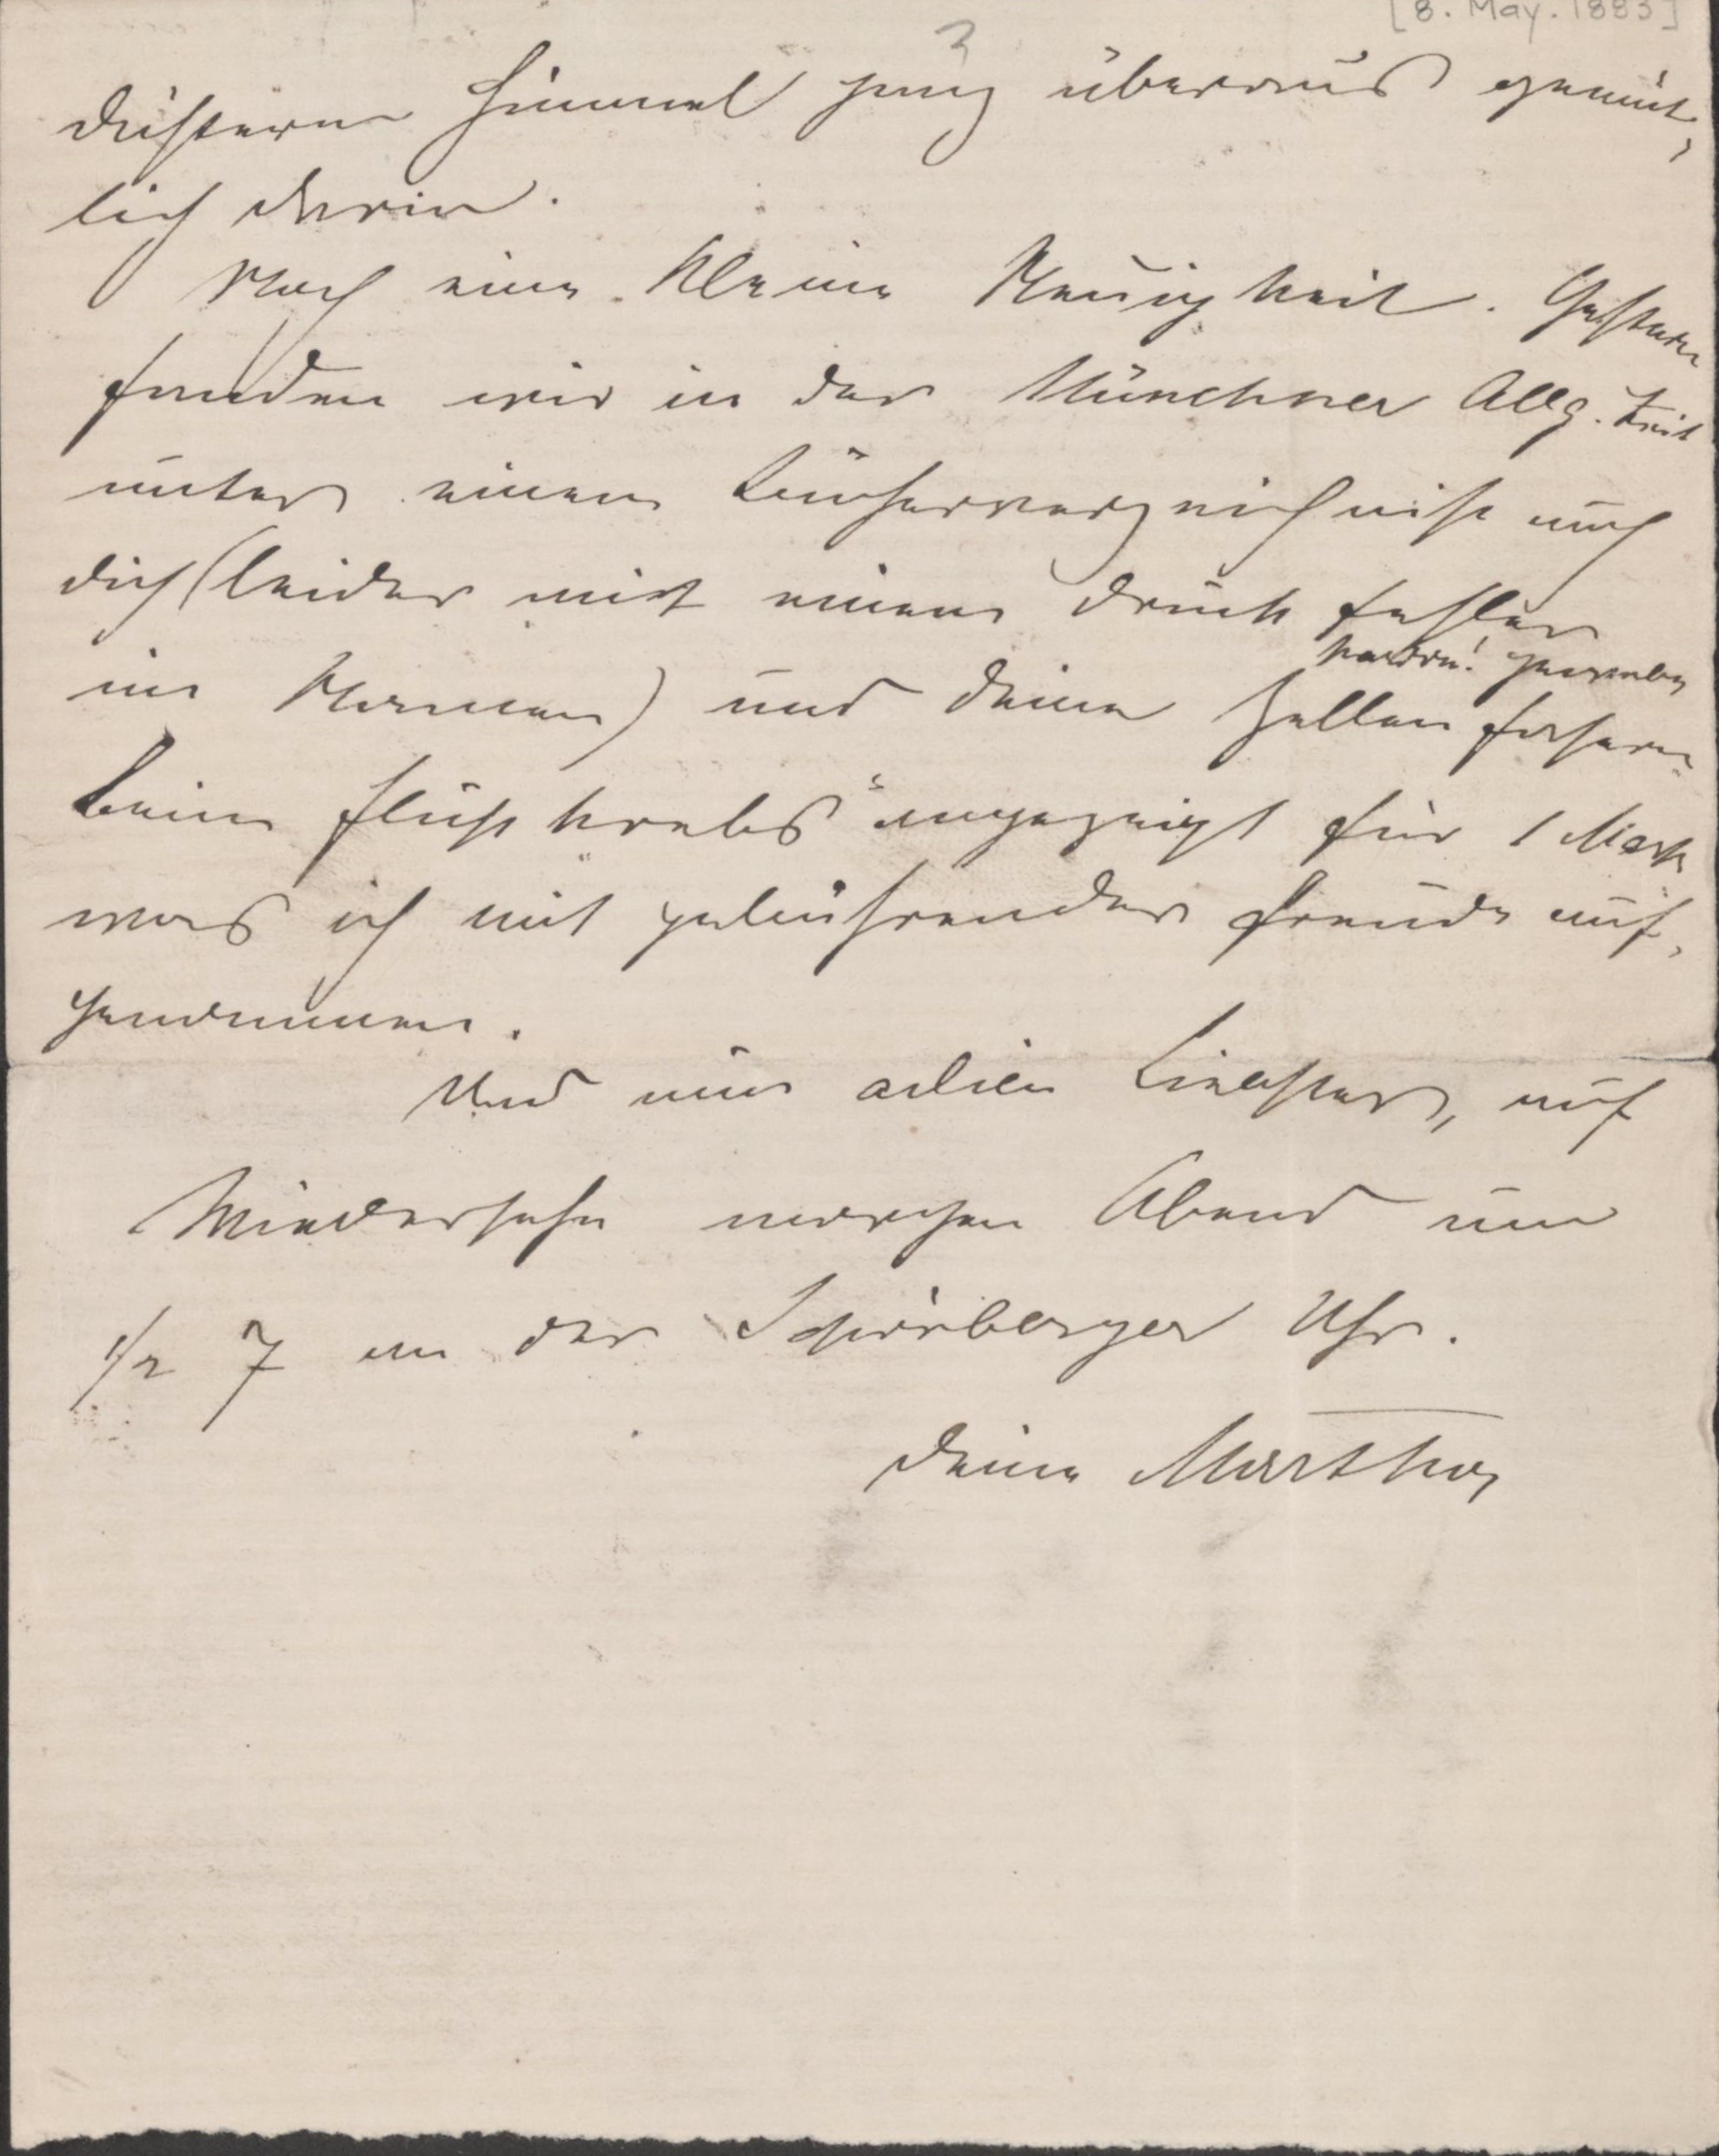 [8. May. 1883]
3
düsteren Himmel ganz überaus gemüt-
lich darin.
Noch eine kleine Neuigkeit. Gestern
fanden wir in der Münchner Allg. Zeit
unter einem Bücherverzeichniß auch
dich (leider mit einem Druckfehler
im Namen) und deine Zellen fasern
beim Flußkrebs" angezeigt für 1 Mark
was ich mit gebührender Freude auf-
genommen.
Und nun adieu Liebster, auf
Wiedersehn morgen Abend um
1/2 7 an der Uhr.
Deine Martha